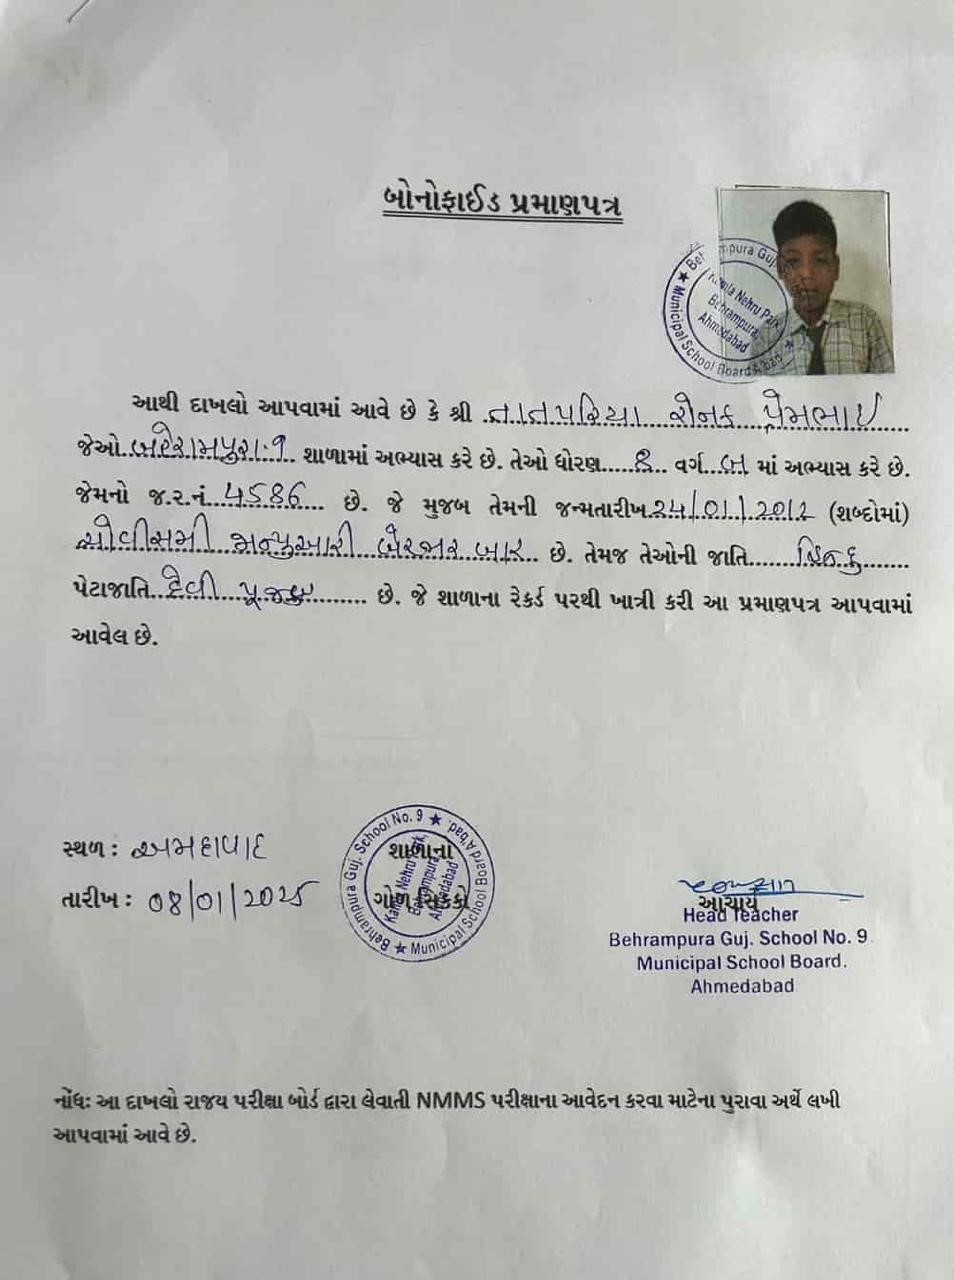 બોનોફાઈડ પ્રમાણપત્ર
Behrampura Guj.
Municipal School Board A'bad
Kamla Nehru Park
Behrampura,
Ahmedabad
આથી દાખલો આપવામાં આવે છે કે શ્રી તાતપરિયા રોનક પ્રેમભાઈ
જેઓ બહેરામપુરા-૧ શાળામાં અભ્યાસ કરે છે. તેઓ ધોરણ 8 વર્ગ બ માં અભ્યાસ કરે છે.
જેમનો જ.ર.નં. 4586 છે. જે મુજબ તેમની જન્મતારીખ 24/01/2012 (શબ્દોમાં)
ચોવીસમી જાન્યુઆરી બેહજાર બાર છે. તેમજ તેઓની જાતિ હિન્દુ
પેટાજાતિ દેવી પૂજક છે. જે શાળાના રેકર્ડ પરથી ખાત્રી કરી આ પ્રમાણપત્ર આપવામાં
આવેલ છે.
સ્થળ : અમદાવાદ
તારીખ : 08/01/2025
Behrampura Guj. School No. 9 ★ Municipal School Board A'bad. ★
Kamla Nehru Park,
Behrampura,
Ahmedabad
શાળાના
ગોળ સિક્કો
આચાર્ય
Head Teacher
Behrampura Guj. School No. 9
Municipal School Board.
Ahmedabad
નોંધઃ આ દાખલો રાજય પરીક્ષા બોર્ડ દ્વારા લેવાતી NMMS પરીક્ષાના આવેદન કરવા માટેના પુરાવા અર્થે લખી
આપવામાં આવે છે.